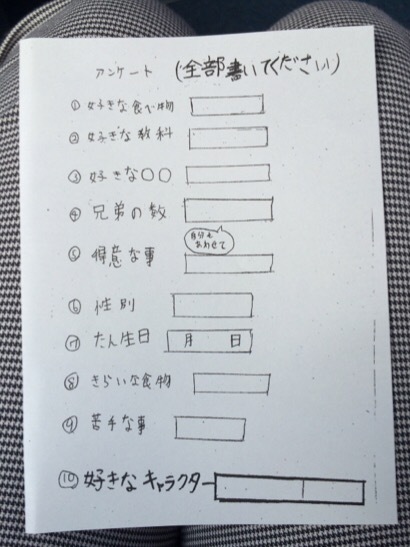 アンケート (全部書いてください)
①好きな食べ物
②好きな教科
③好きな〇〇
④兄弟の数
自分も
あわせて
⑤得意な事
⑥性別
⑦たん生日 月 日
⑧きらいな食物
⑨苦手な事
⑩好きなキャラクター